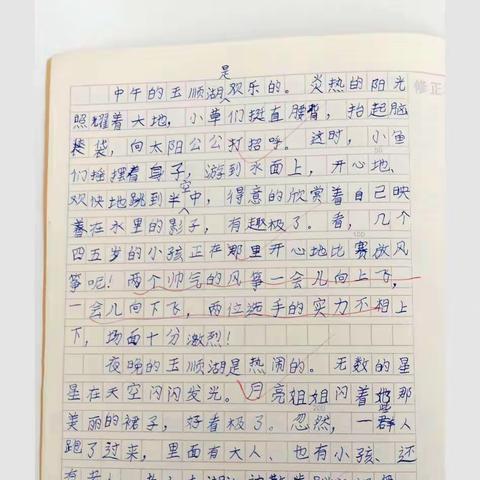 是
中午的玉顺湖欢乐的。炎热的阳光
照耀着大地，小草们挺直腰背，抬起脑
袋，向太阳公公打招呼。这时，小鱼
们摇摆着身子，游到水面上，开心地、
空
欢快地跳到半中，得意的欣赏着自己映
着在水里的影子，有趣极了。看，几个
四五岁的小孩正在那里开心地比赛放风
筝呢！两个帅气的风筝一会儿向上飞，
一会儿向下飞，两位选手的实力不相上
下，场面十分激烈！
夜晚的玉顺湖是热闹的。无数的星
星在天空闪闪发光。月亮姐姐闪着她那
美丽的裙子，好看极了。忽然，一群人
跑了过来，里面有大人、也有小孩、还
修正